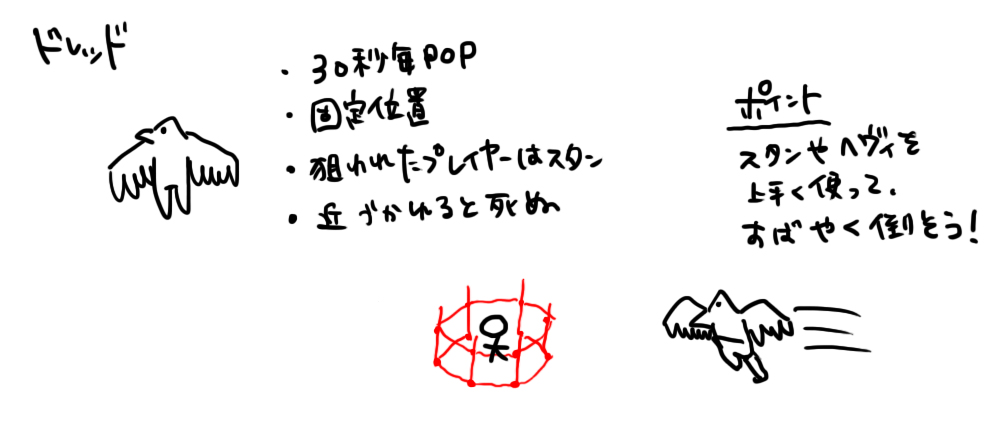 ドレッド
・30秒毎POP
・固定位置
・狙われたプレイヤーはスタン
・近づかれると死ぬ
ポイント
スタンやヘヴィを
上手く使って、
すばやく倒そう!